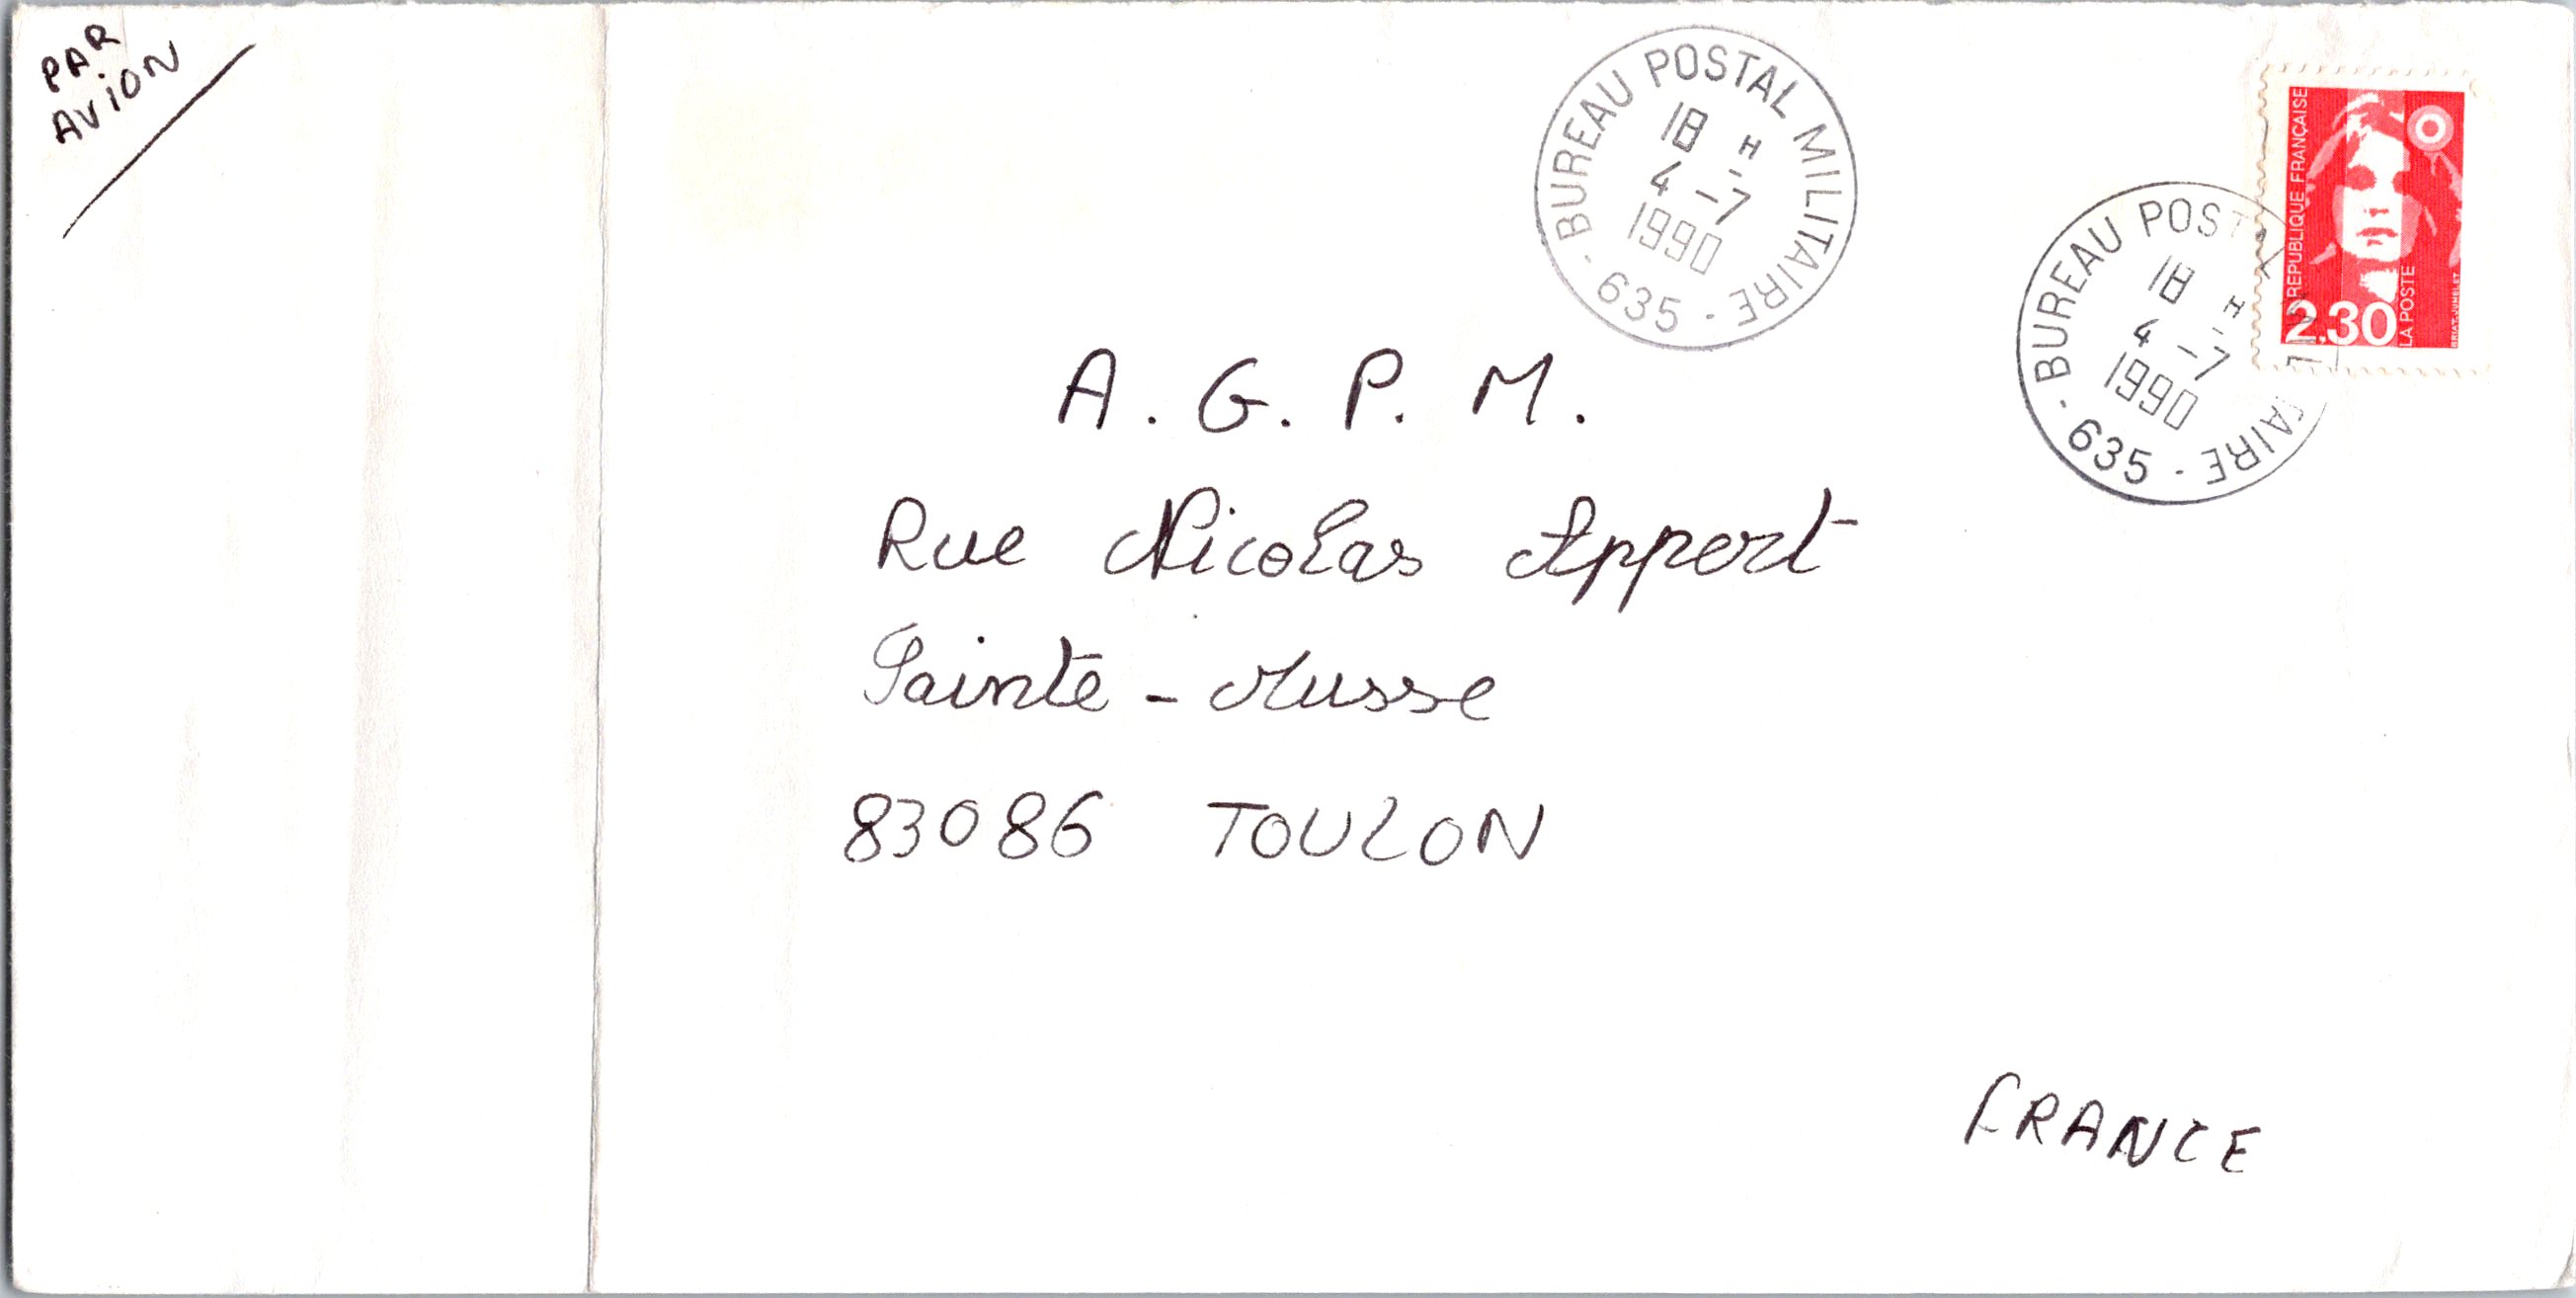 PAR
AVION
BUREAU POSTAL MILITAIRE
18 H
4 - 7
1990
· 635 ·
BUREAU POSTAL MILITAIRE
18 H
4 - 7
1990
· 635 ·
REPUBLIQUE FRANÇAISE
2.30
LA POSTE
A. G. P. M.
Rue Nicolas Appert
Sainte - Musse
83086 TOULON
FRANCE